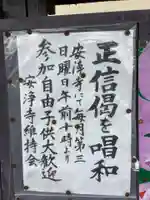 正信偈を唱和
安浄寺にて毎月第三
日曜日午前十時より
参加自由子供大歓迎
安浄寺維持会